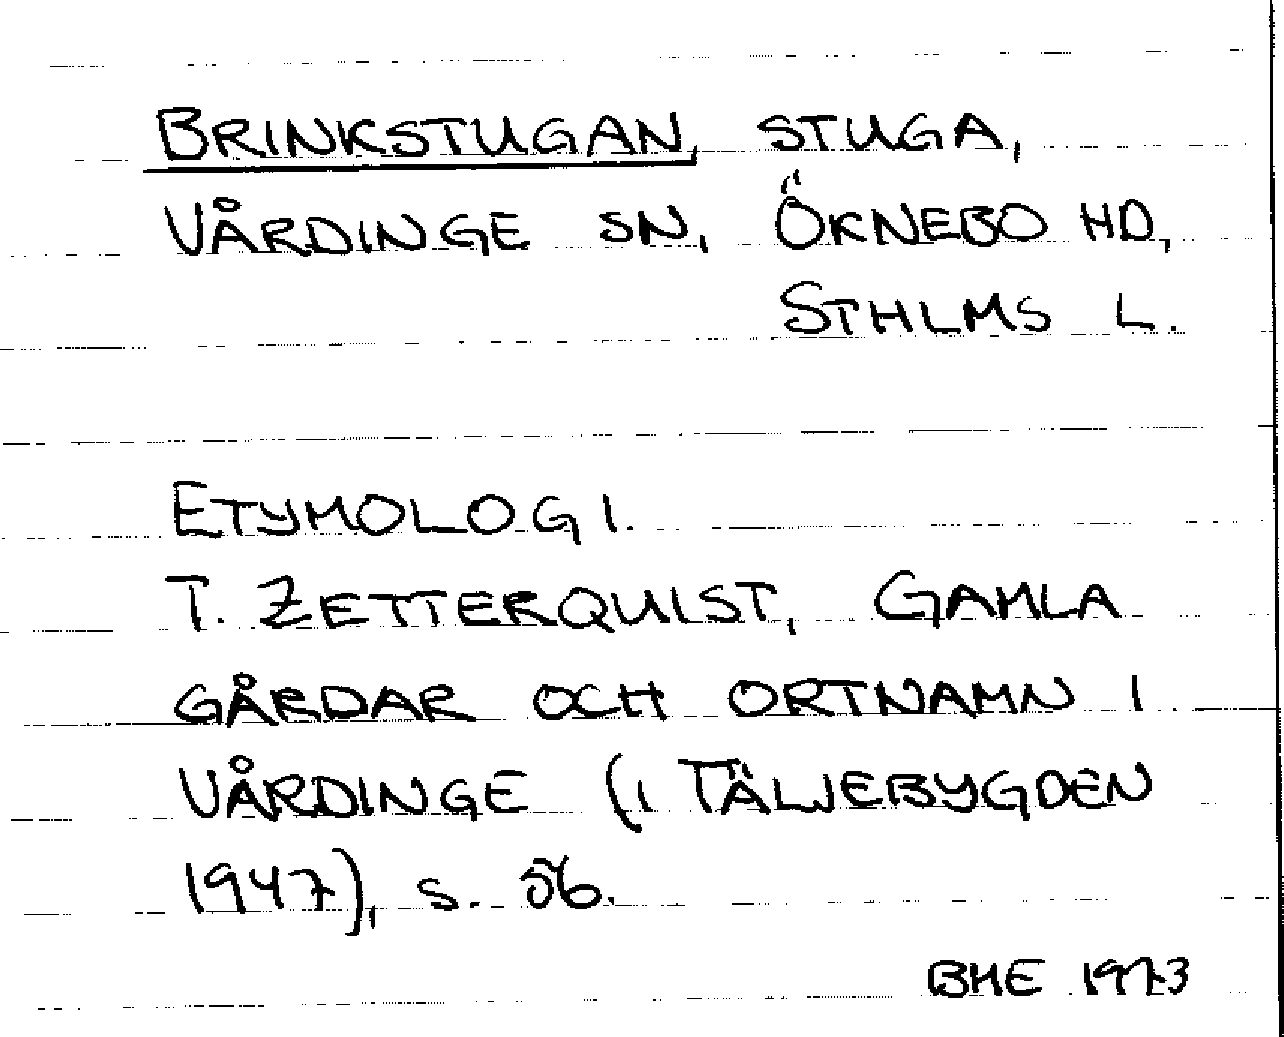 BRINKSTUGAN, STUGA,
VÅRDINGE SN, ÖKNEBO HD,
STHLMS L.
ETYMOLOGI.
T. ZETTERQUIST, GAMLA
GÅRDAR OCH ORTNAMN I
VÅRDINGE (I TÄLJEBYGDEN
1947), S. 56.
BME 1973